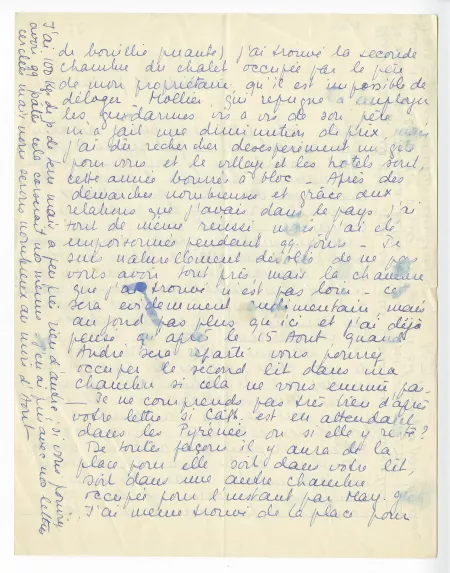 de bouillie puante) j'ai trouvé la seconde
chambre du chalet occupée par le père
de mon propriétaire, qu'il est impossible de
déloger. Mollier, qui répugne à employer
les gendarmes vis à vis de son père
m'a fait une diminution de prix, mais
j'ai dû rechercher désespérément un gîte
pour vous, et le village et les hôtels sont,
cette année bourrés à bloc. Après des
démarches nombreuses et grâce aux
relations que j'avais dans le pays j'ai
tout de même réussi mais j'ai été
empoisonnée pendant qq jours. Je
suis naturellement désolée de ne pas
vous avoir tout près, mais la chambre
que j'ai trouvée n'est pas loin - ce
sera évidemment rudimentaire, mais
au fond pas plus qu'ici et j'ai déjà
pensé qu'après le 15 Août, quand
André sera reparti vous pourrez
occuper le second lit dans ma
chambre si cela ne vous ennuie pas.
— Je ne comprends pas très bien d'après
votre lettre si Cath. est en attendant
dans les Pyrénées ou si elle y reste?
De toutes façons il y aura de la
place pour elle soit dans votre lit,
soit dans une autre chambre
occupée pour l'instant par May.
J'ai même trouvé de la place pour
J'ai 100 kg de p. de terre mais à peu près rien d'autre, si vous pouviez
avoir qq pâtes cela corserait nos menus. J'en ai pu avec nos lettres
mais nous serons nombreux au mois d'Août